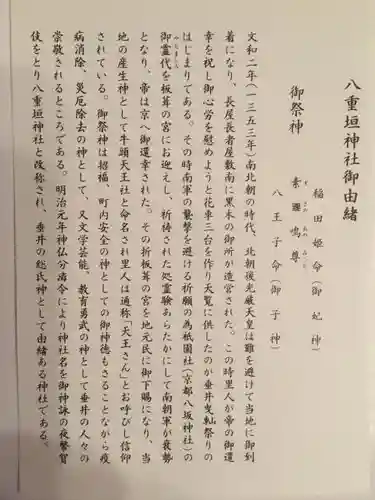 八重垣神社御由緒
稲田姫命(御妃神)
御祭神 素盞嗚尊
八王子命(御子神)
文和二年(一三五三年)南北朝の時代、北朝後光厳天皇は難を避けて当地に御到
着になり、長屋長者屋敷南に黒木の御所が造営された。この時里人が帝の御還
幸を祝し御心労を慰めようと花車三台を作り天覧に供したのが垂井曳𨋳祭りの
はじまりである。その時南軍の襲撃を避ける祈願の為祇園社(京都八坂神社)の
御霊代を板葺の宮にお迎えし、祈祷された処霊験あらたかにして南朝軍が衰勢
となり、帝は京へ御還幸された。その折板葺の宮を地元民に御下賜になり、当
地の産生神として牛頭天王社と命名され里人は通称「天王さん」とお呼びし信仰
されている。御祭神は招福、町内安全の神としての御神徳もさることながら疫
病消除、災厄除去の神として、又文学芸能。教育勇武の神として垂井の人々の
崇敬されるところである。明治元年神仏分清令により神社名を御神詠の夜弊賀
伎をとり八重垣神社と改称され、垂井の総氏神として由緒ある神社である。